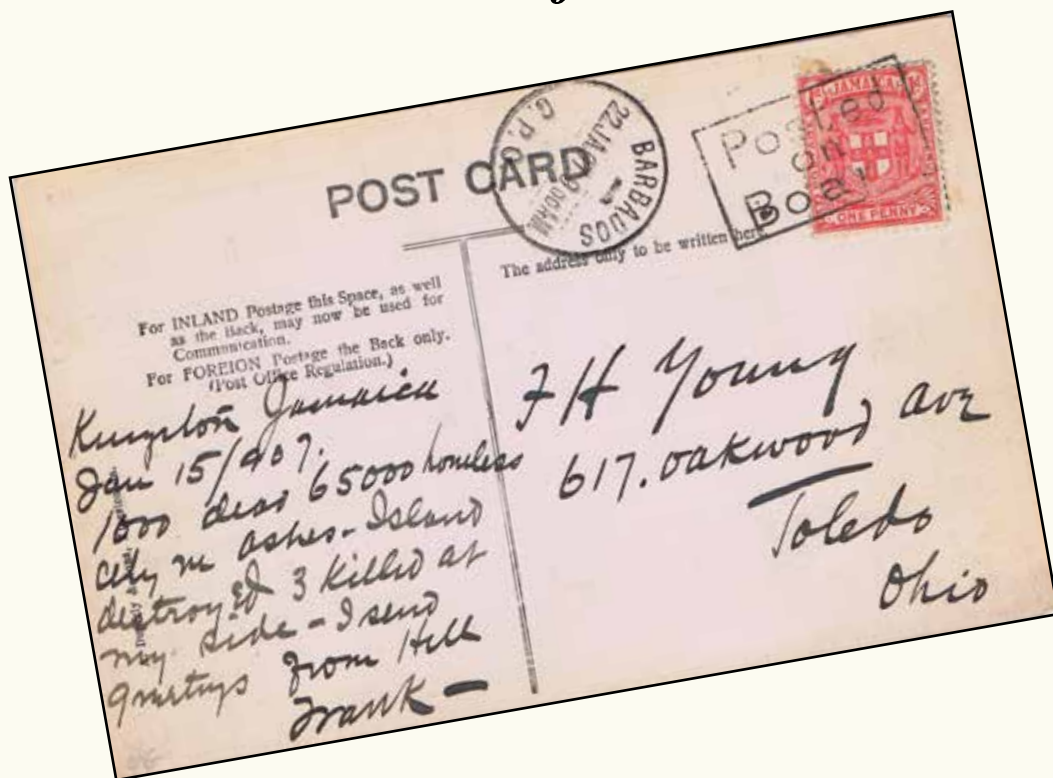 POST CARD
BARBADOS
G.P.O.
22 JA 07
9 00 AM
Posted
on
Boat
JAMAICA
ONE PENNY
The address only to be written here.
For INLAND Postage this Space, as well
as the Back, may now be used for
Communication.
For FOREIGN Postage the Back only.
(Post Office Regulation.)
Kingston Jamaica
Jan 15/907.
1000 dead 65000 homeless
City in ashes - Island
destroyed 3 killed at
my side - I send
greetings from Hell
Frank -
F H Young
617. Oakwood Ave
Toledo
Ohio